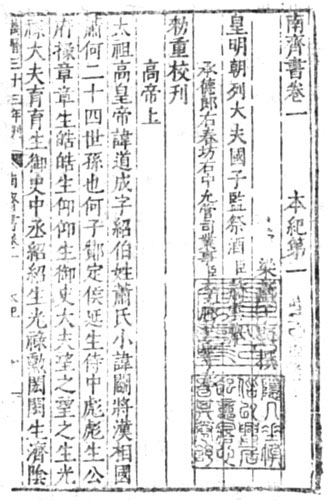 南齊書卷一 本紀第一
梁蕭 撰
皇明朝列大夫國子監祭酒臣
承德郎右春坊右中允管司業事臣
勑重校刊
高帝上
太祖高皇帝諱道成字紹伯姓蕭氏小諱鬬將漢相國
蕭何二十四世孫也何子酇定侯延生侍中彪彪生公
府掾章章生皓皓生仰仰生御史大夫望之望之生光
祿大夫育育生御史中丞紹紹生光祿勲閎閎生濟陰
三十三年刊 南齊書卷一 本紀 一